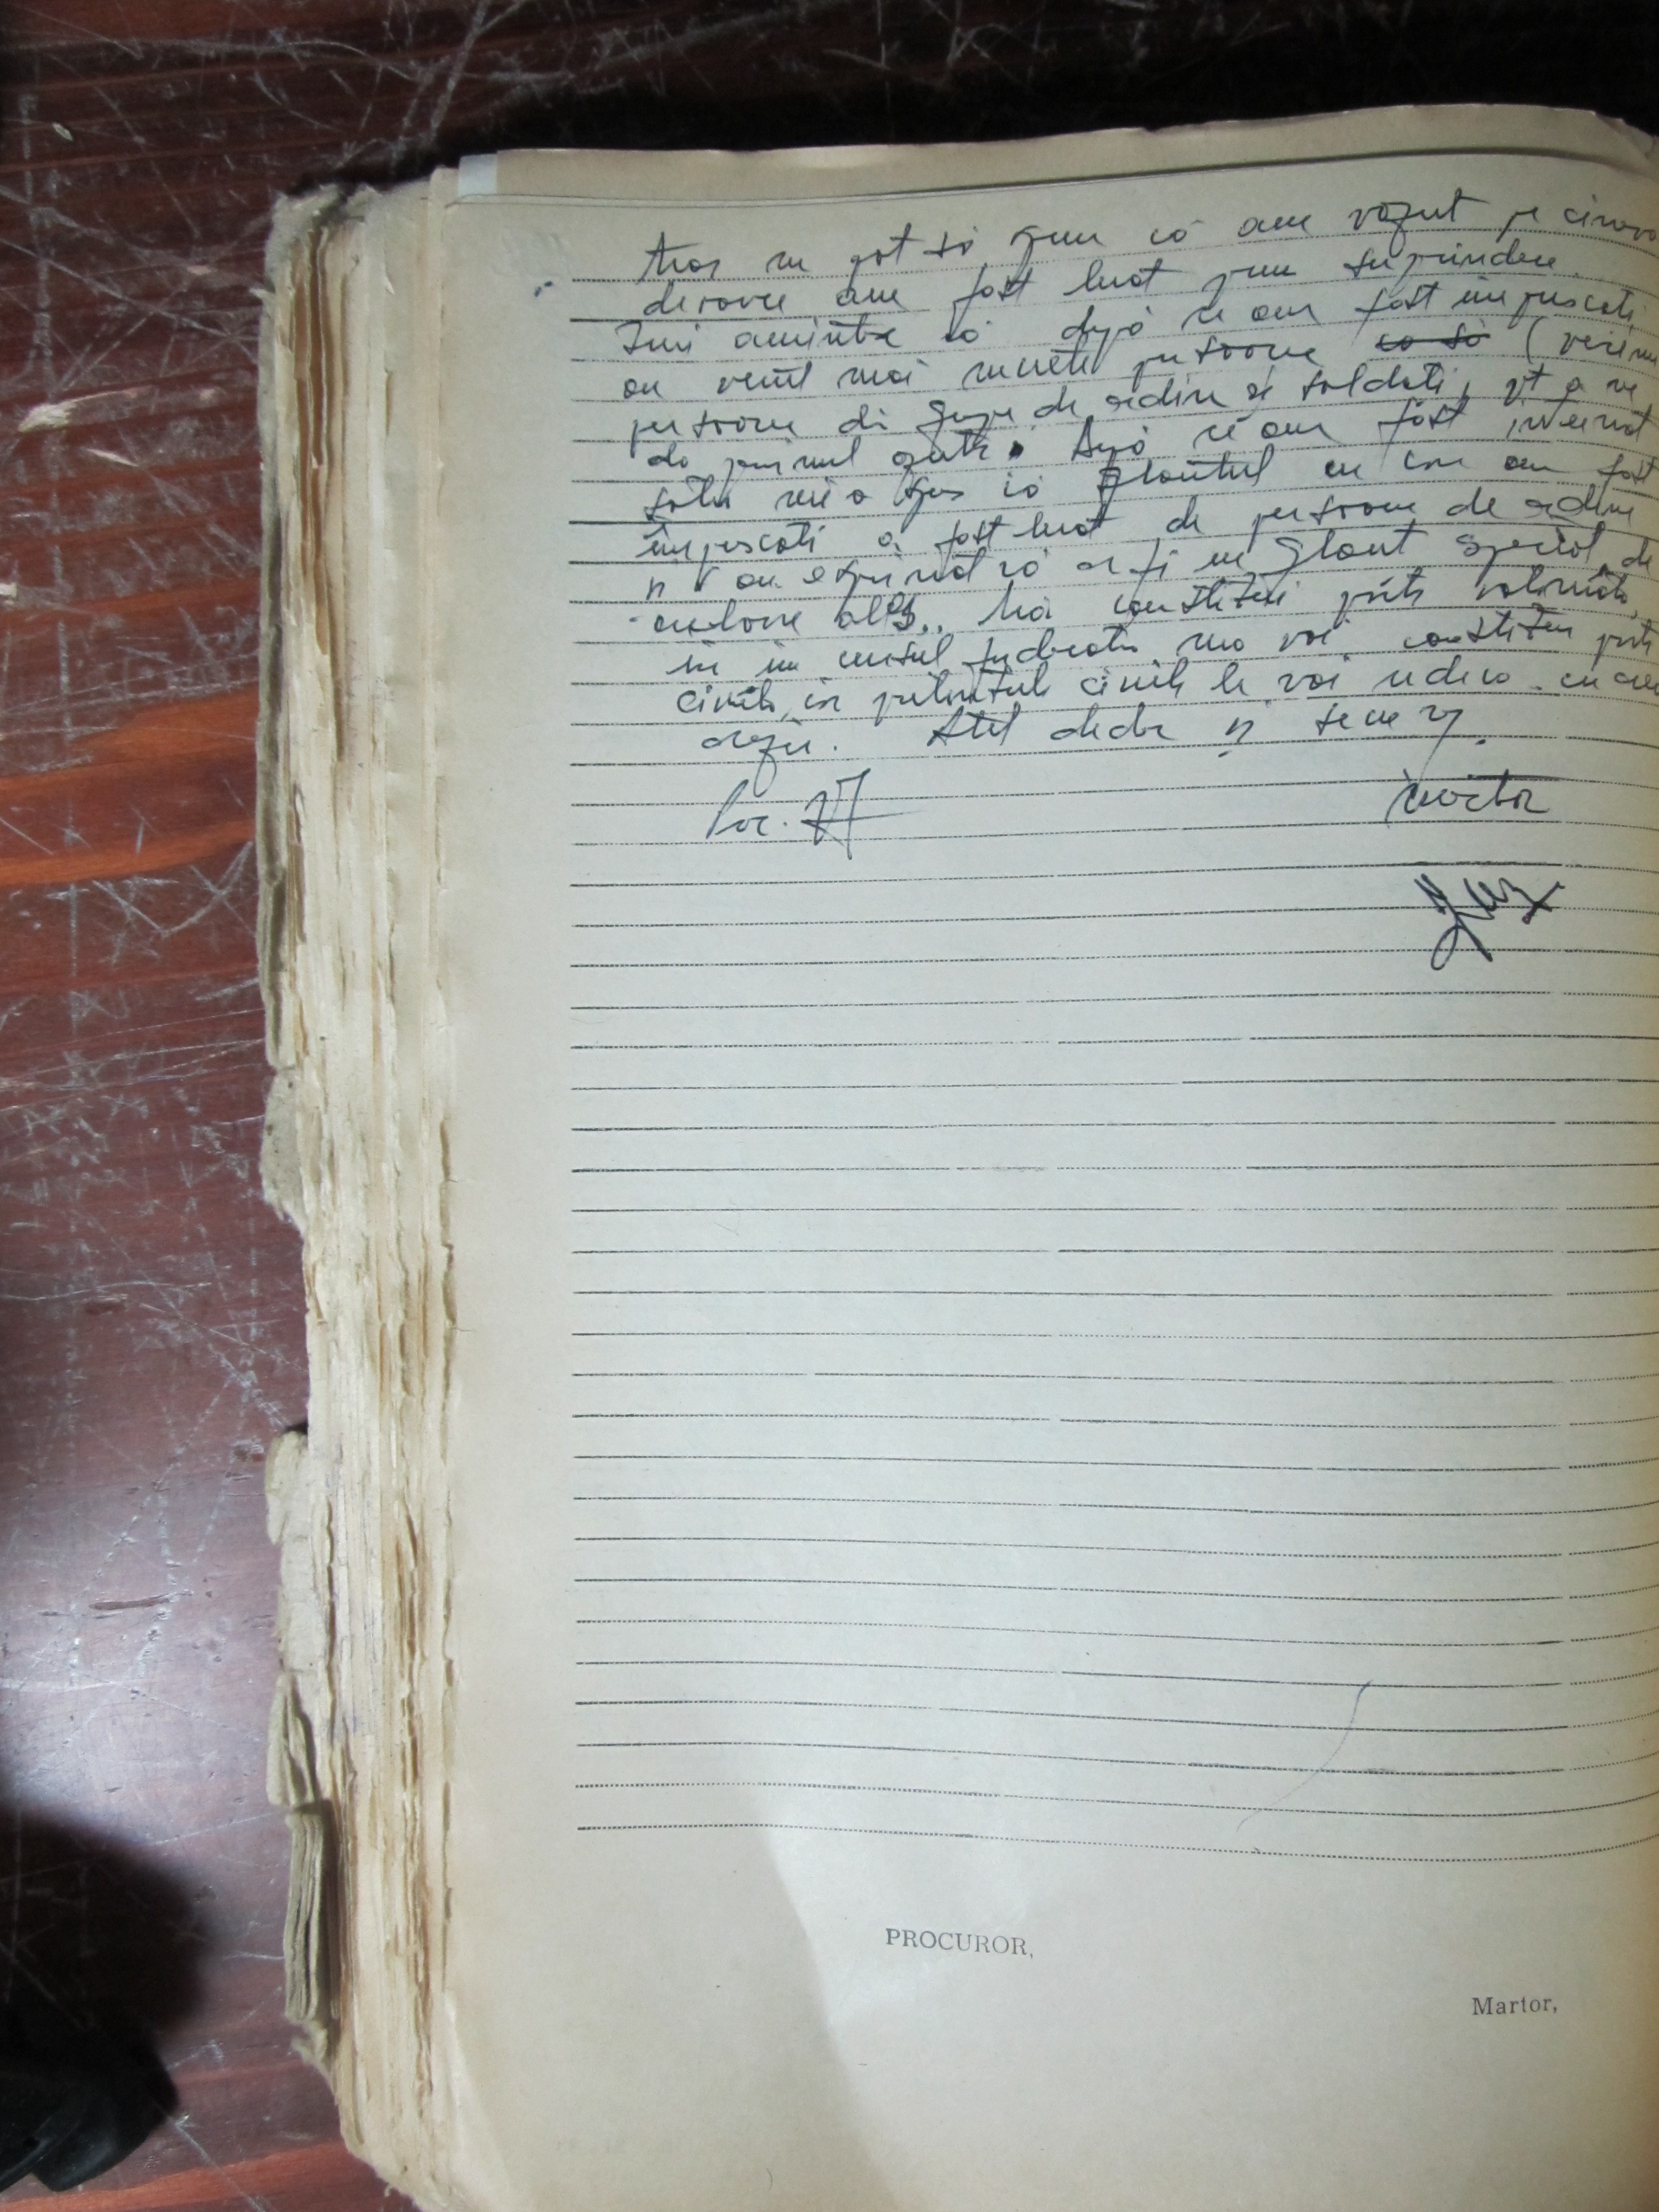 tras nu pot să spun că am văzut pe cineva
deoarece am fost luat prin surprindere.
Îmi amintesc că după ce am fost împușcați
au venit mai multe persoane ca să (vecini
persoane din gărzi de ordine și soldați, pt a ne
da primul ajutor. După ce am fost internat
soția mi-a spus că glontul cu care am fost
împușcați a fost luat de persoane de ordine
și au exprimat că ar fi un glonț special, de
culoare albă. Mă constitui parte vătămată,
iar în cursul judecății mă voi constitui parte
civilă, iar pretențiile civile le voi ridica cu acea
ocazie. Atât declar și semnez.
Proc.
Martor
PROCUROR,
Martor,